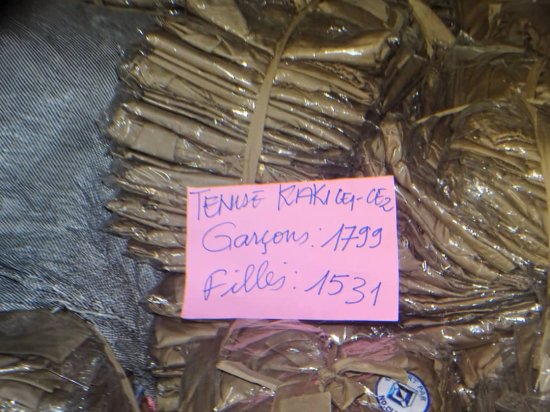 TENUE KAKI CE1-CE2
Garçons: 1799
Filles: 1531